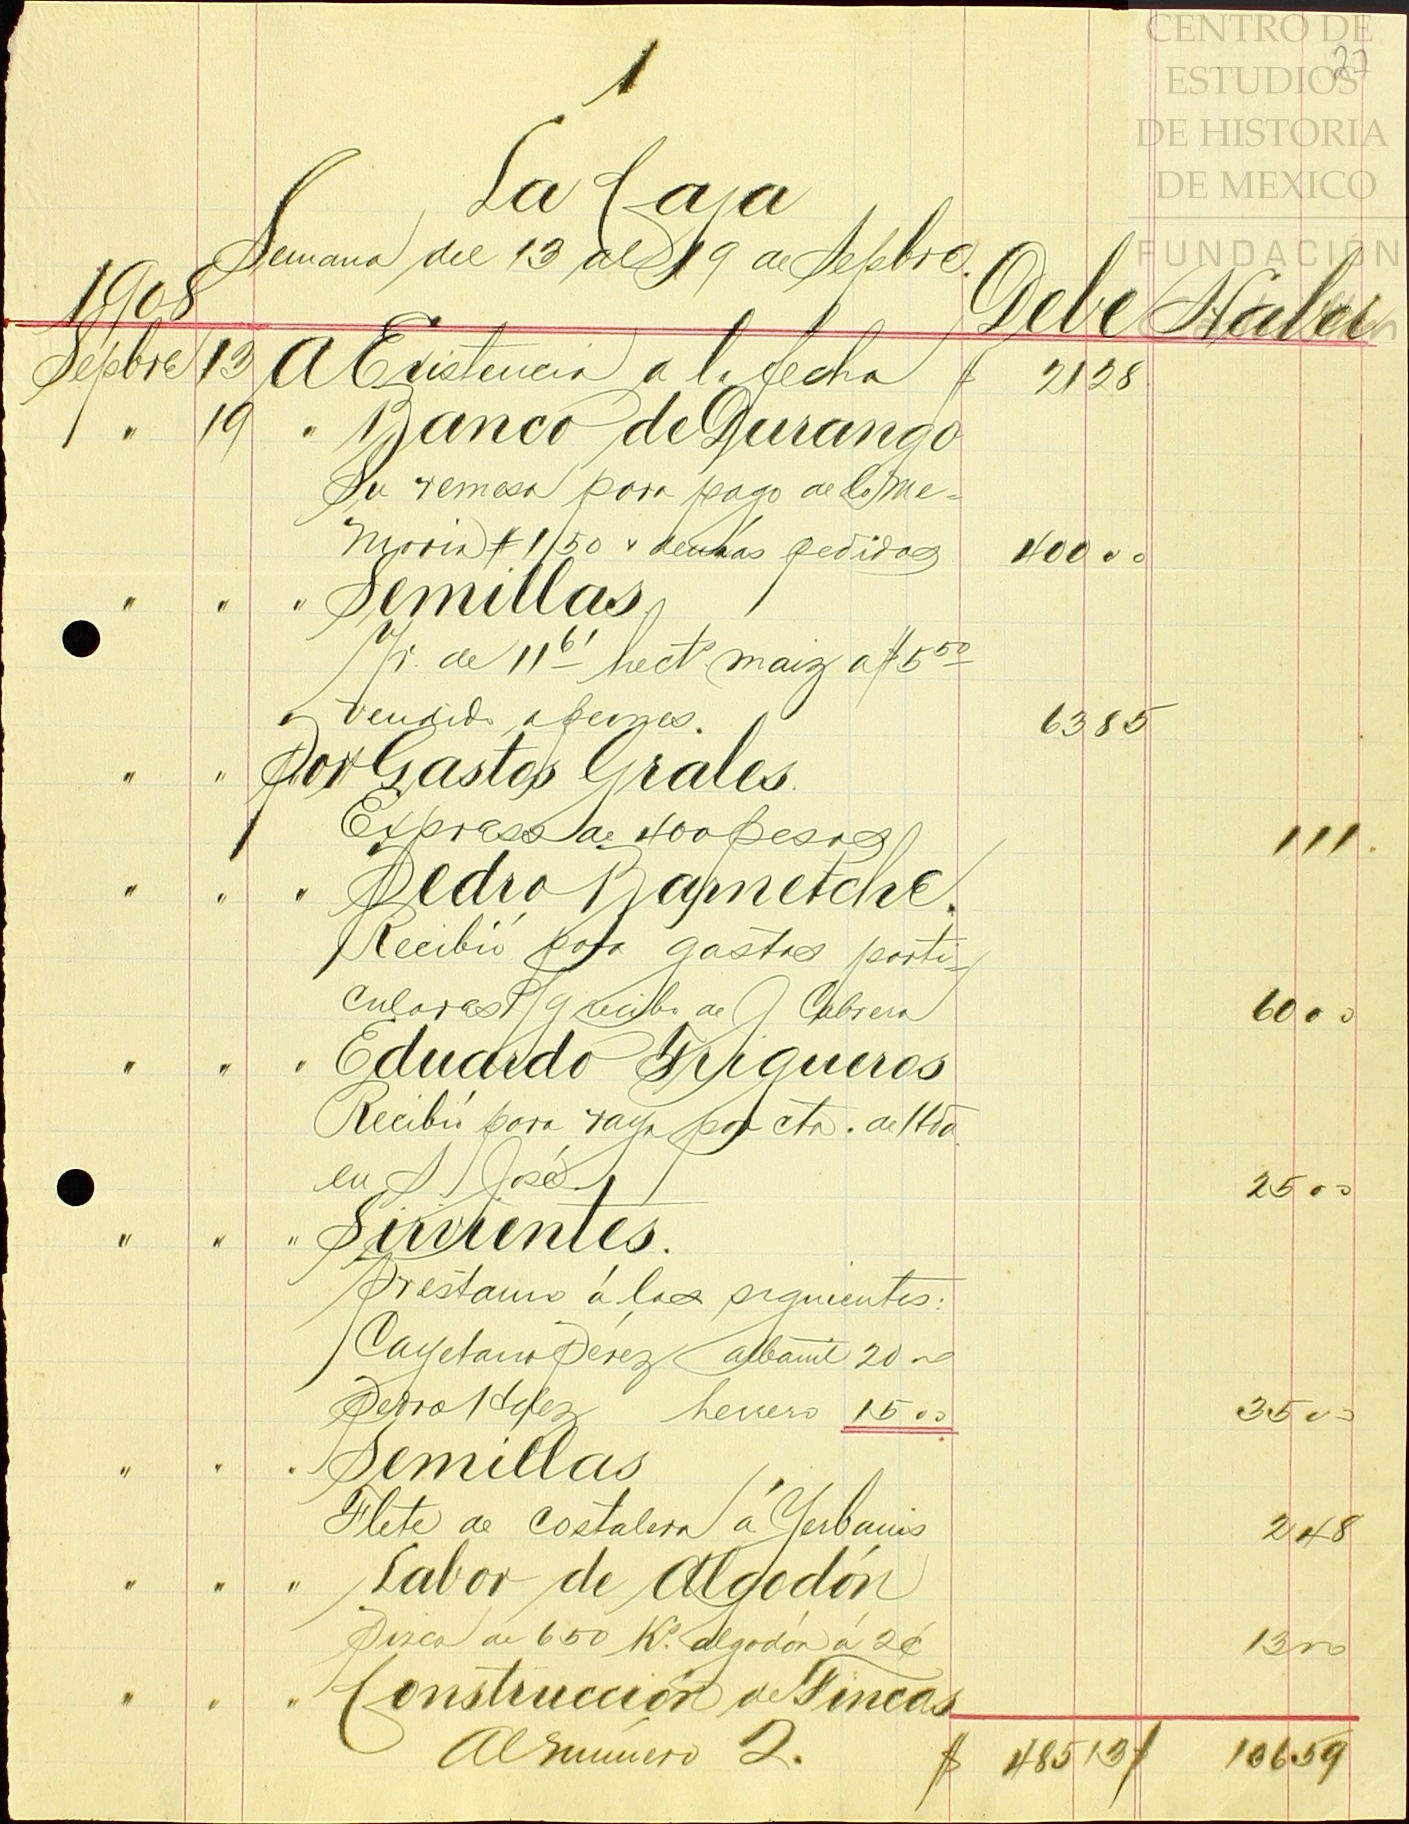 CENTRO DE
ESTUDIOS
DE HISTORIA
DE MEXICO
FUNDACIÓN
27
1
La Caja
Semana del 13 al 19 de Sepbre.
1908 Debe Haber
Sepbre 13 A Existencia a la fecha $ 21 28
" 19 " Banco de Durango
Su remesa para pago de la Me-
moria # 150 y demás pedidos 400 00
" " " Semillas
de 11 61 hects. maiz a $5 50
vendido a peones. 63 85
" " Por Gastos Grales.
Express de 400 pesos 1 11.
" " " Pedro Bametche.
Recibió para gastos parti-
culares recibo de J Cabrera 60 00
" " " Eduardo Trigueros
Recibió para raya por cta. de Hda.
en S José. 25 00
" " " Sirvientes.
Préstamo á los siguientes:
Cayetano Pérez albañil 20 00
Pedro Hdez herrero 15 00 35 00
" " " Semillas
Flete de costalera á Yerbanis 2 48
" " " Labor de Algodón
Pizca de 650 Ks. algodón á 2¢ 13 00
" " " Construcción de Fincas
Al número 2. $ 485 13 $ 136 59